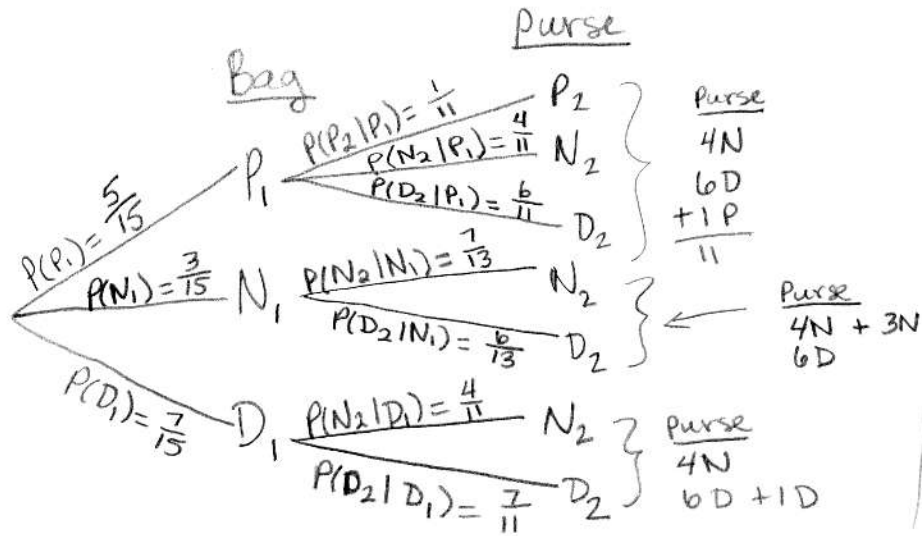 Purse
Bag
P(P₁) = 5/15
P₁
P(P₂|P₁) = 1/11
P₂
P(N₂|P₁) = 4/11
N₂
P(D₂|P₁) = 6/11
D₂
Purse
4N
6D
+1P
11
P(N₁) = 3/15
N₁
P(N₂|N₁) = 7/13
N₂
P(D₂|N₁) = 6/13
D₂
Purse
4N + 3N
6D
P(D₁) = 7/15
D₁
P(N₂|D₁) = 4/11
N₂
P(D₂|D₁) = 7/11
D₂
Purse
4N
6D + 1D